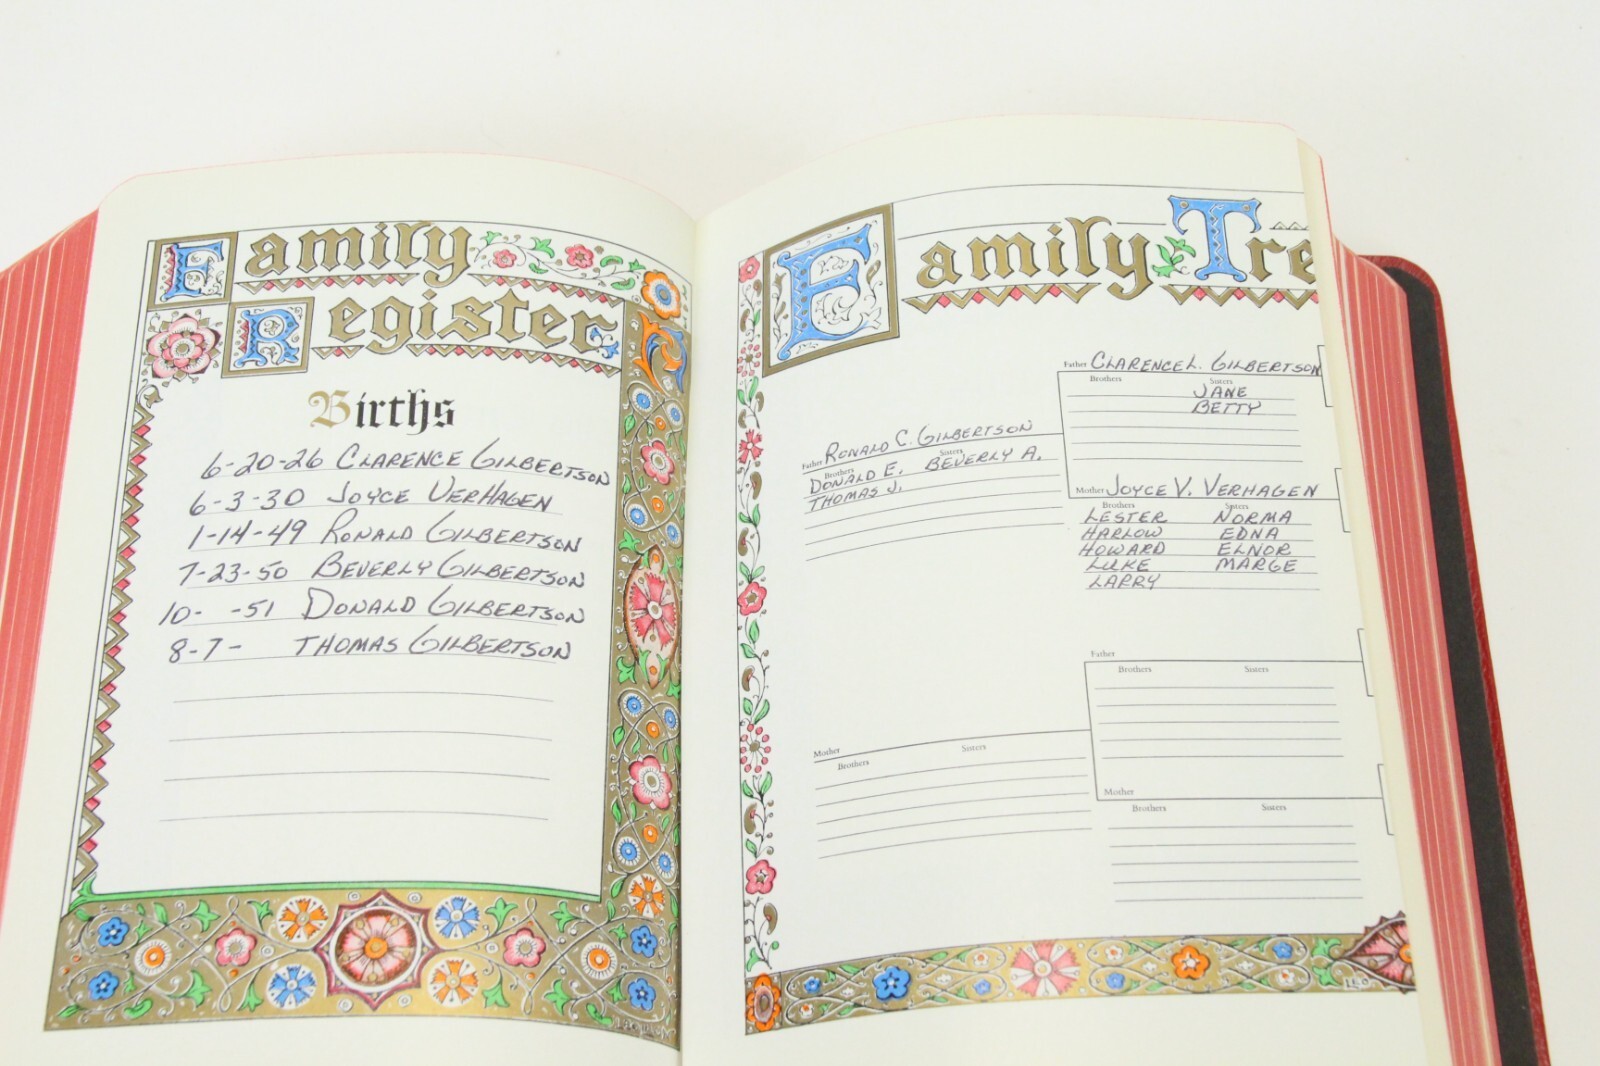 Family
Register
Births
6-20-26 CLARENCE GILBERTSON
6-3-30 JOYCE VERHAGEN
1-14-49 RONALD GILBERTSON
7-23-50 BEVERLY GILBERTSON
10- -51 DONALD GILBERTSON
8-7- THOMAS GILBERTSON
Family Tre
Father CLARENCE L. GILBERTSON
Brothers Sisters
JANE
BETTY
Father RONALD C. GILBERTSON
Brothers Sisters
DONALD E. BEVERLY A.
THOMAS J.
Mother JOYCE V. VERHAGEN
Brothers Sisters
LESTER NORMA
HARLOW EDNA
HOWARD ELNOR
LUKE MARGE
LARRY
Father
Brothers Sisters
Mother Sisters
Brothers
Mother
Brothers Sisters